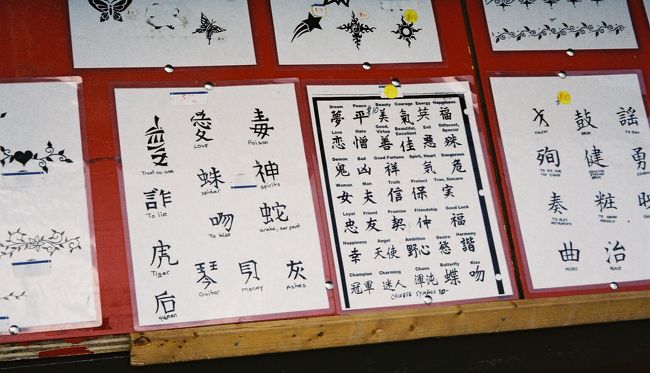 愛
LOVE
毒
Poison
Trust no one
蛛
spider
神
spirits
詐
To lie
吻
To kiss
蛇
snake, serpent
虎
Tiger
后
queen
琴
Guitar
貝
money
灰
Ashes
Dream Peace Beauty Courage Energy Happiness
夢 平 美 氣 氣 福
Love Hate Good, Virtue Beautiful, Excellent Evil Different, Special
戀 憎 善 佳 惡 殊
Demon Bad Good Fortune Spirit, Heart Dangerous
鬼 凶 祥 气 危
Woman Man Truth Protect True, Sincere
女 夫 信 保 実
Loyal Friend Promise Friendship Good Luck
忠 友 契 仲 福
Happiness Angel Ambition Desire Harmony
幸 天使 野心 慾 諧
Champion Charming Chaos Butterfly Kiss
冠軍 迷人 渾沌 蝶 吻
CHINESE SYMBOLS 10-
鼓
DRUM
謡
殉
健
勇
奏
粧
曲
MUSIC
治
PEACE